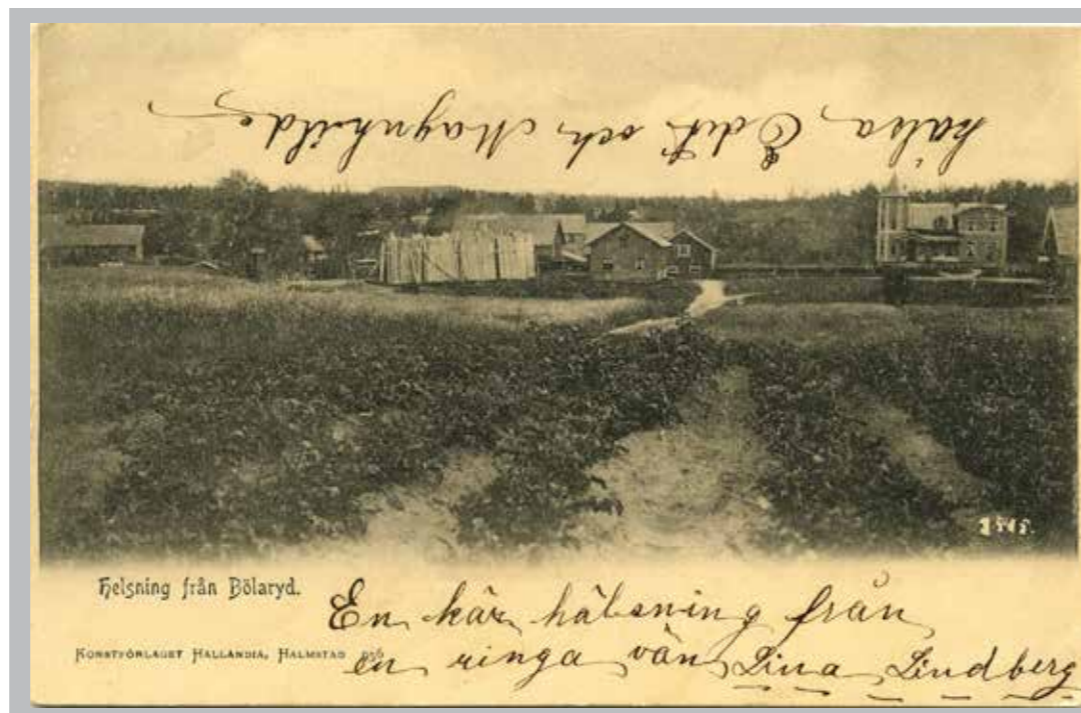 hälsa Edit och Magnhild
Helsning från Bölaryd.
En kär hälsning från
en ringa vän Lina Lindberg
Konstförlaget Hallandia, Halmstad 956